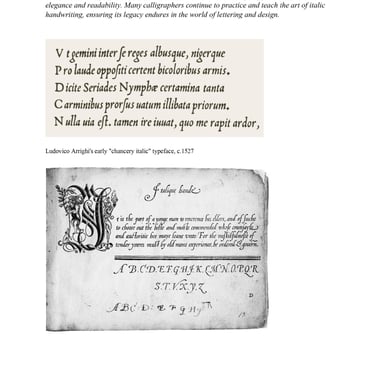 elegance and readability. Many calligraphers continue to practice and teach the art of italic
handwriting, ensuring its legacy endures in the world of lettering and design.
V t gemini inter se reges albusque, nigerque
P ro laude oppositi certent bicoloribus armis.
D icite Seriades Nymphæ certamina tanta
C arminibus prorsus uatum illibata priorum.
N ulla uia est. tamen ire iuuat, quo me rapit ardor,
Ludovico Arrighi's early "chancery italic" typeface, c.1527
Italique hande
t is the part of a yonge man to reverence his elders, and of suche
to choose out the beste and moste commended whose counsayle
and auctoritie hee maye leane unto: For the
tender yeares must by old mens experience, be ordered & governed.
A B C D E F G H I K L M N O P Q R
S T V X Y Z
A B C D E F G H